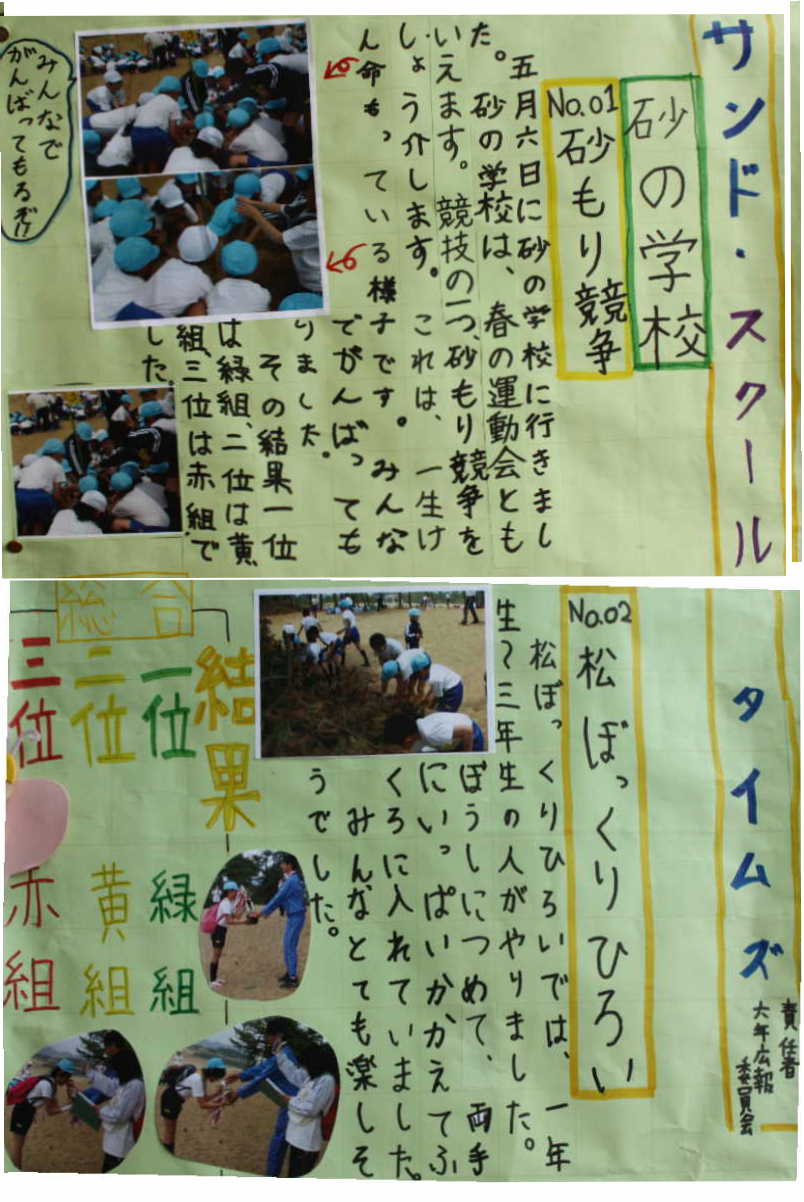 サンド・スクール
砂の学校
No.01 砂もり競争
五月六日に砂の学校に行きまし
た。砂の学校は、春の運動会とも
いえます。競技の一つ、砂もり競争を
しょう介します。これは、一生け
ん命もっている様子です。みんな
でがんばっても
りました。
その結果一位
は緑組、二位は黄
組、三位は赤組で
した。
みんなで
がんばってもるぞ!!
タイムズ
責任者
六年広報
委員会
No.02 松ぼっくりひろい
松ぼっくりひろいでは、一年
生〜三年生の人がやりました。
ぼうしにつめて、両手
にいっぱいかかえてふ
くろに入れていました。
みんなとても楽しそ
うでした。
総合
結果
一位 緑組
二位 黄組
三位 赤組